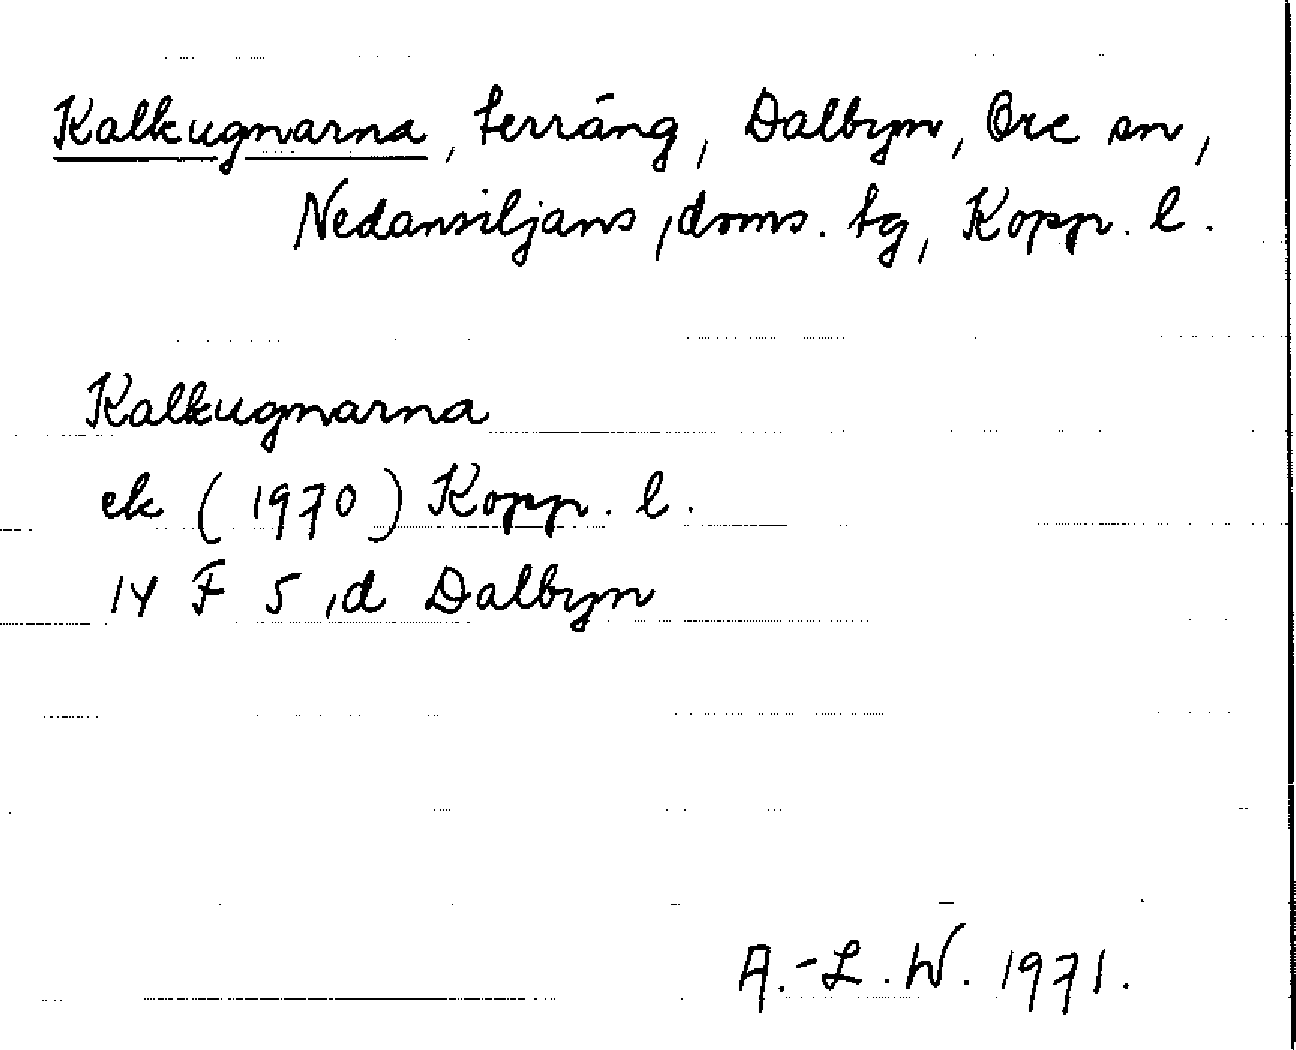 Kalkugnarna, terräng, Dalbyn, Ore sn,
Nedansiljans, doms. tg, Kopp. l.
Kalkugnarna
ek (1970) Kopp. l.
14 F 5, d Dalbyn
A.-L. W. 1971.